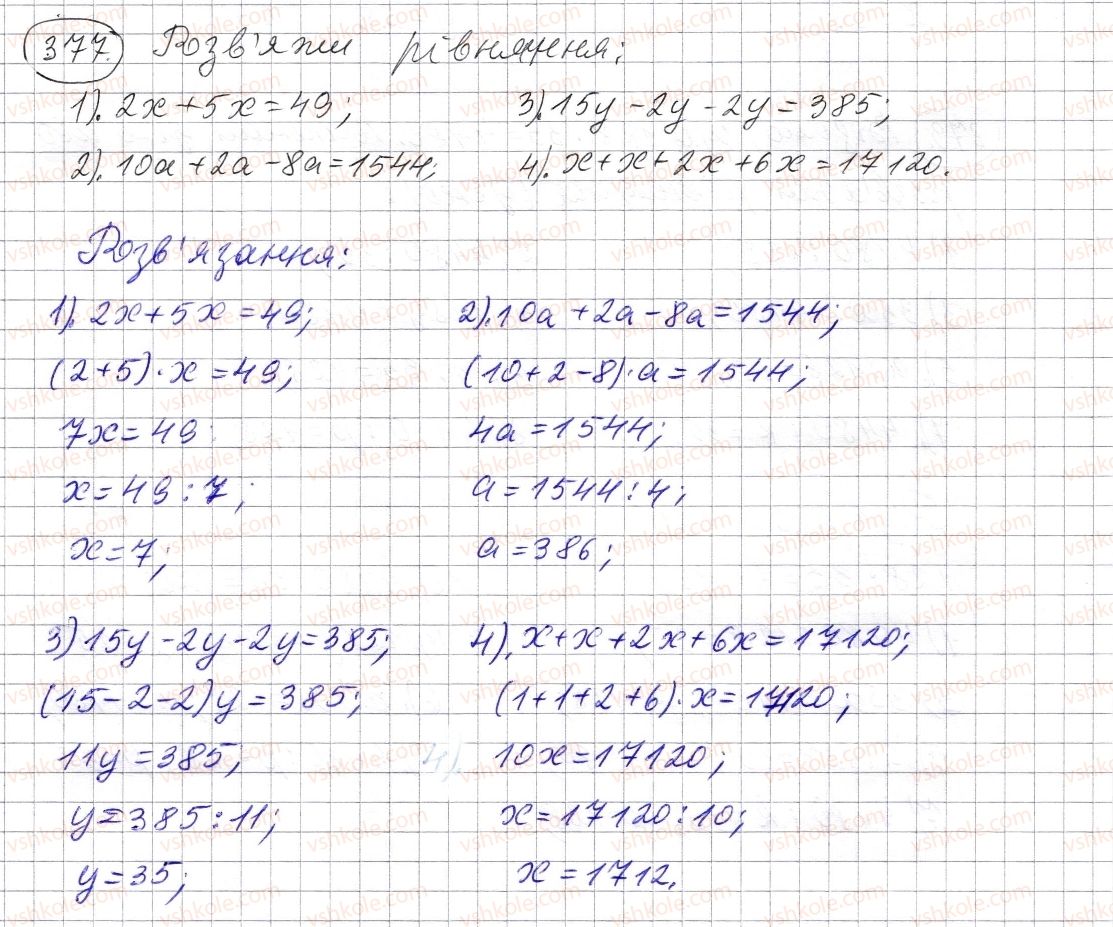 377. Розв'яжи рівняння:
1). 2x + 5x = 49; 3). 15y - 2y - 2y = 385;
2). 10a + 2a - 8a = 1544; 4). x + x + 2x + 6x = 17120.
Розв'язання:
1). 2x + 5x = 49; 2). 10a + 2a - 8a = 1544;
(2 + 5) · x = 49; (10 + 2 - 8) · a = 1544;
7x = 49 4a = 1544;
x = 49 : 7; a = 1544 : 4;
x = 7; a = 386;
3) 15y - 2y - 2y = 385; 4). x + x + 2x + 6x = 17120;
(15 - 2 - 2) y = 385; (1 + 1 + 2 + 6) · x = 17120;
11y = 385; 4). 10x = 17120;
y = 385 : 11; x = 17120 : 10;
y = 35; x = 1712.
vshkole.com